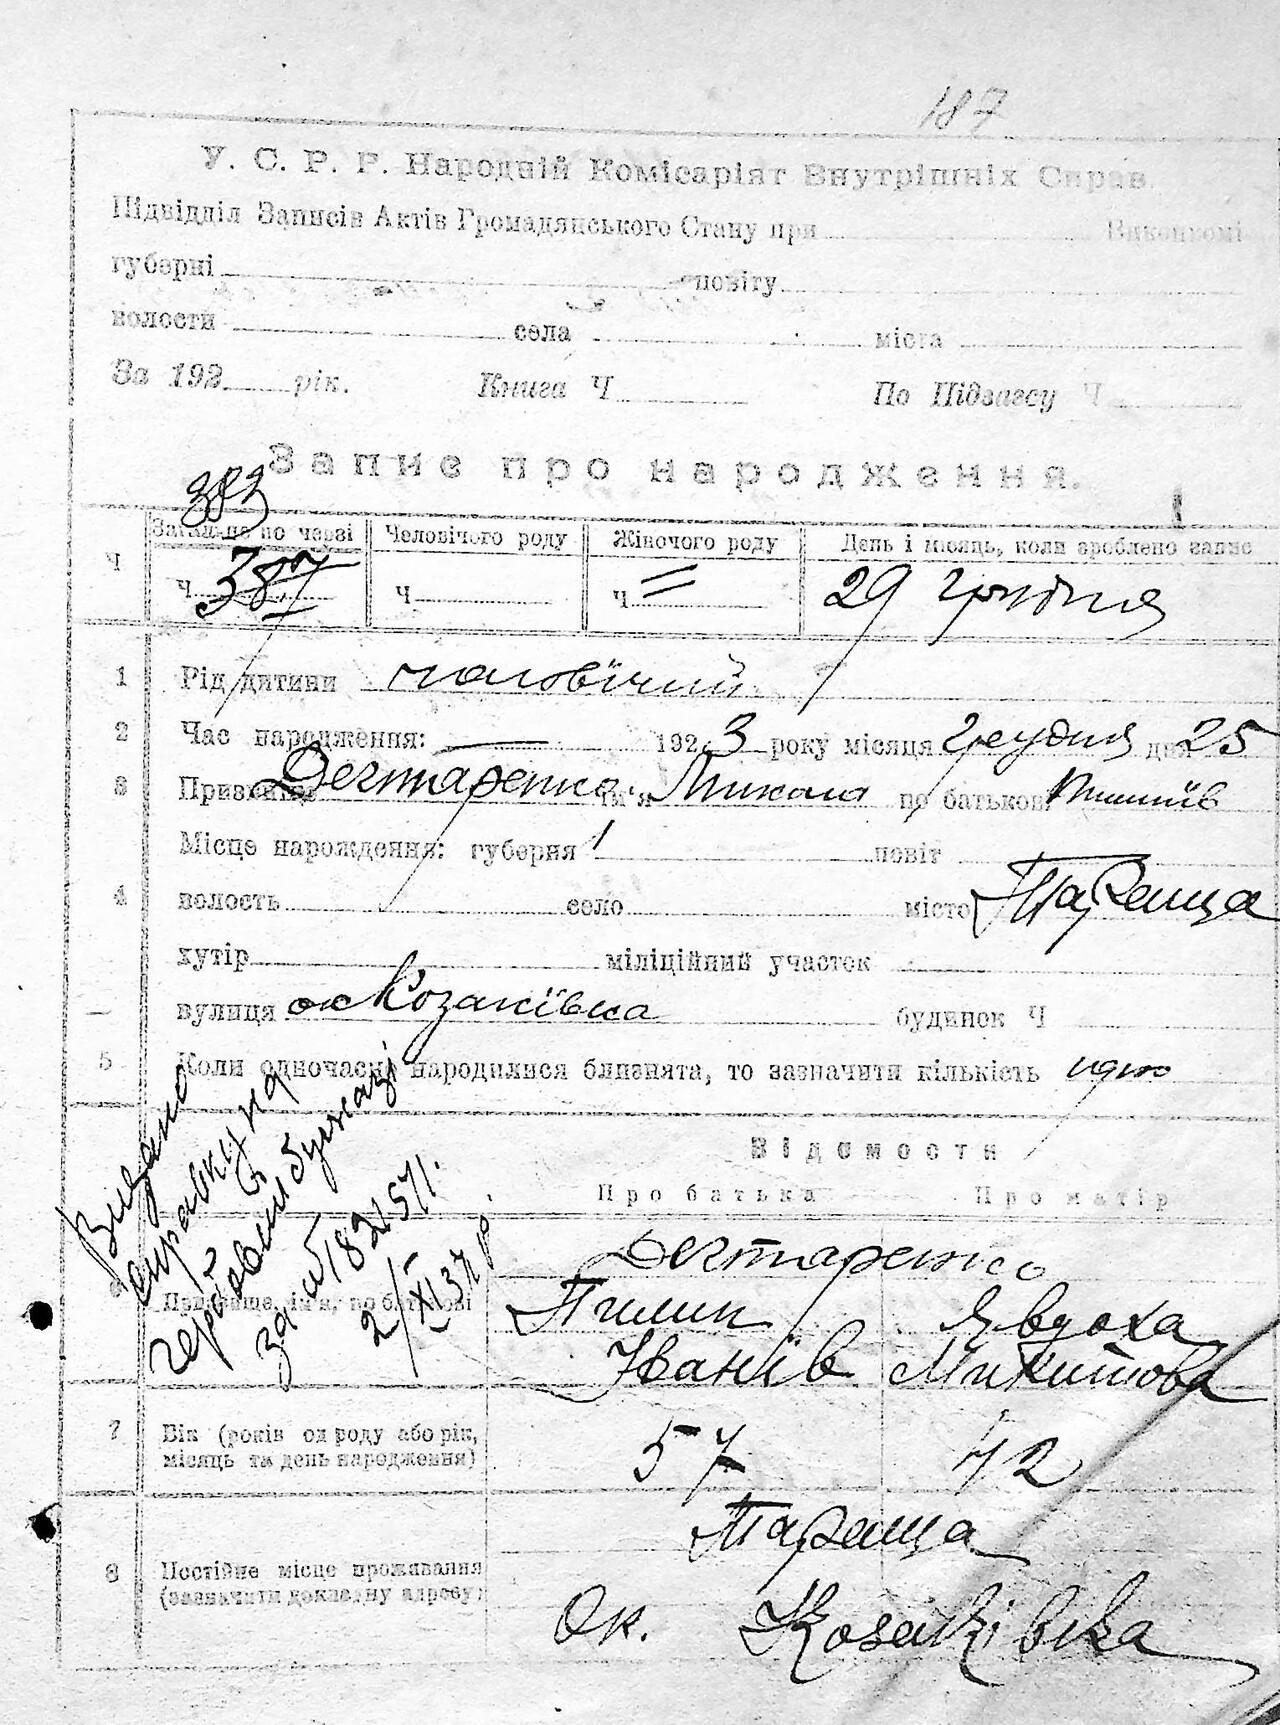 187
У. С. Р. Р. Народній Комісаріят Внутрішніх Справ.
Підвідділ Записів Актів Громадянського Стану при Виконкомі
губерні повіту
волости села міста
За 192 рік. Книга Ч По Підзагсу Ч
Запис про народження.
383
Загально по черзі Человічого роду Жіночого роду День і місяць, коли зроблено запис
Ч Ч 387 Ч Ч 29 грудня
1 Рід дитини чоловічий
2 Час народження: 1923 року місяця грудня дня 25
3 Призвище Дегтаренко ім'я Микола по батькові
Місце народження: губерня повіт
4 волость село місто Тараща
хутір міліційний участок
вулиця ок Козаківка будинок Ч
5 Коли одночасно народилися близнята, то зазначити кількість одно
Відомости
Про батька Про матір
Видано
справку на
гербовій бумазі
за № 182571.
2/XI 37 р.
Дегтаренко
6 Призвище, ім'я, по батькові Пилип Явдоха
Іванів Микитова
7 Вік (років од роду або рік, місяць та день народження) 57 42
Тараща
8 Постійне місце проживання
(зазначити докладну адресу)
Ок. Козаківка